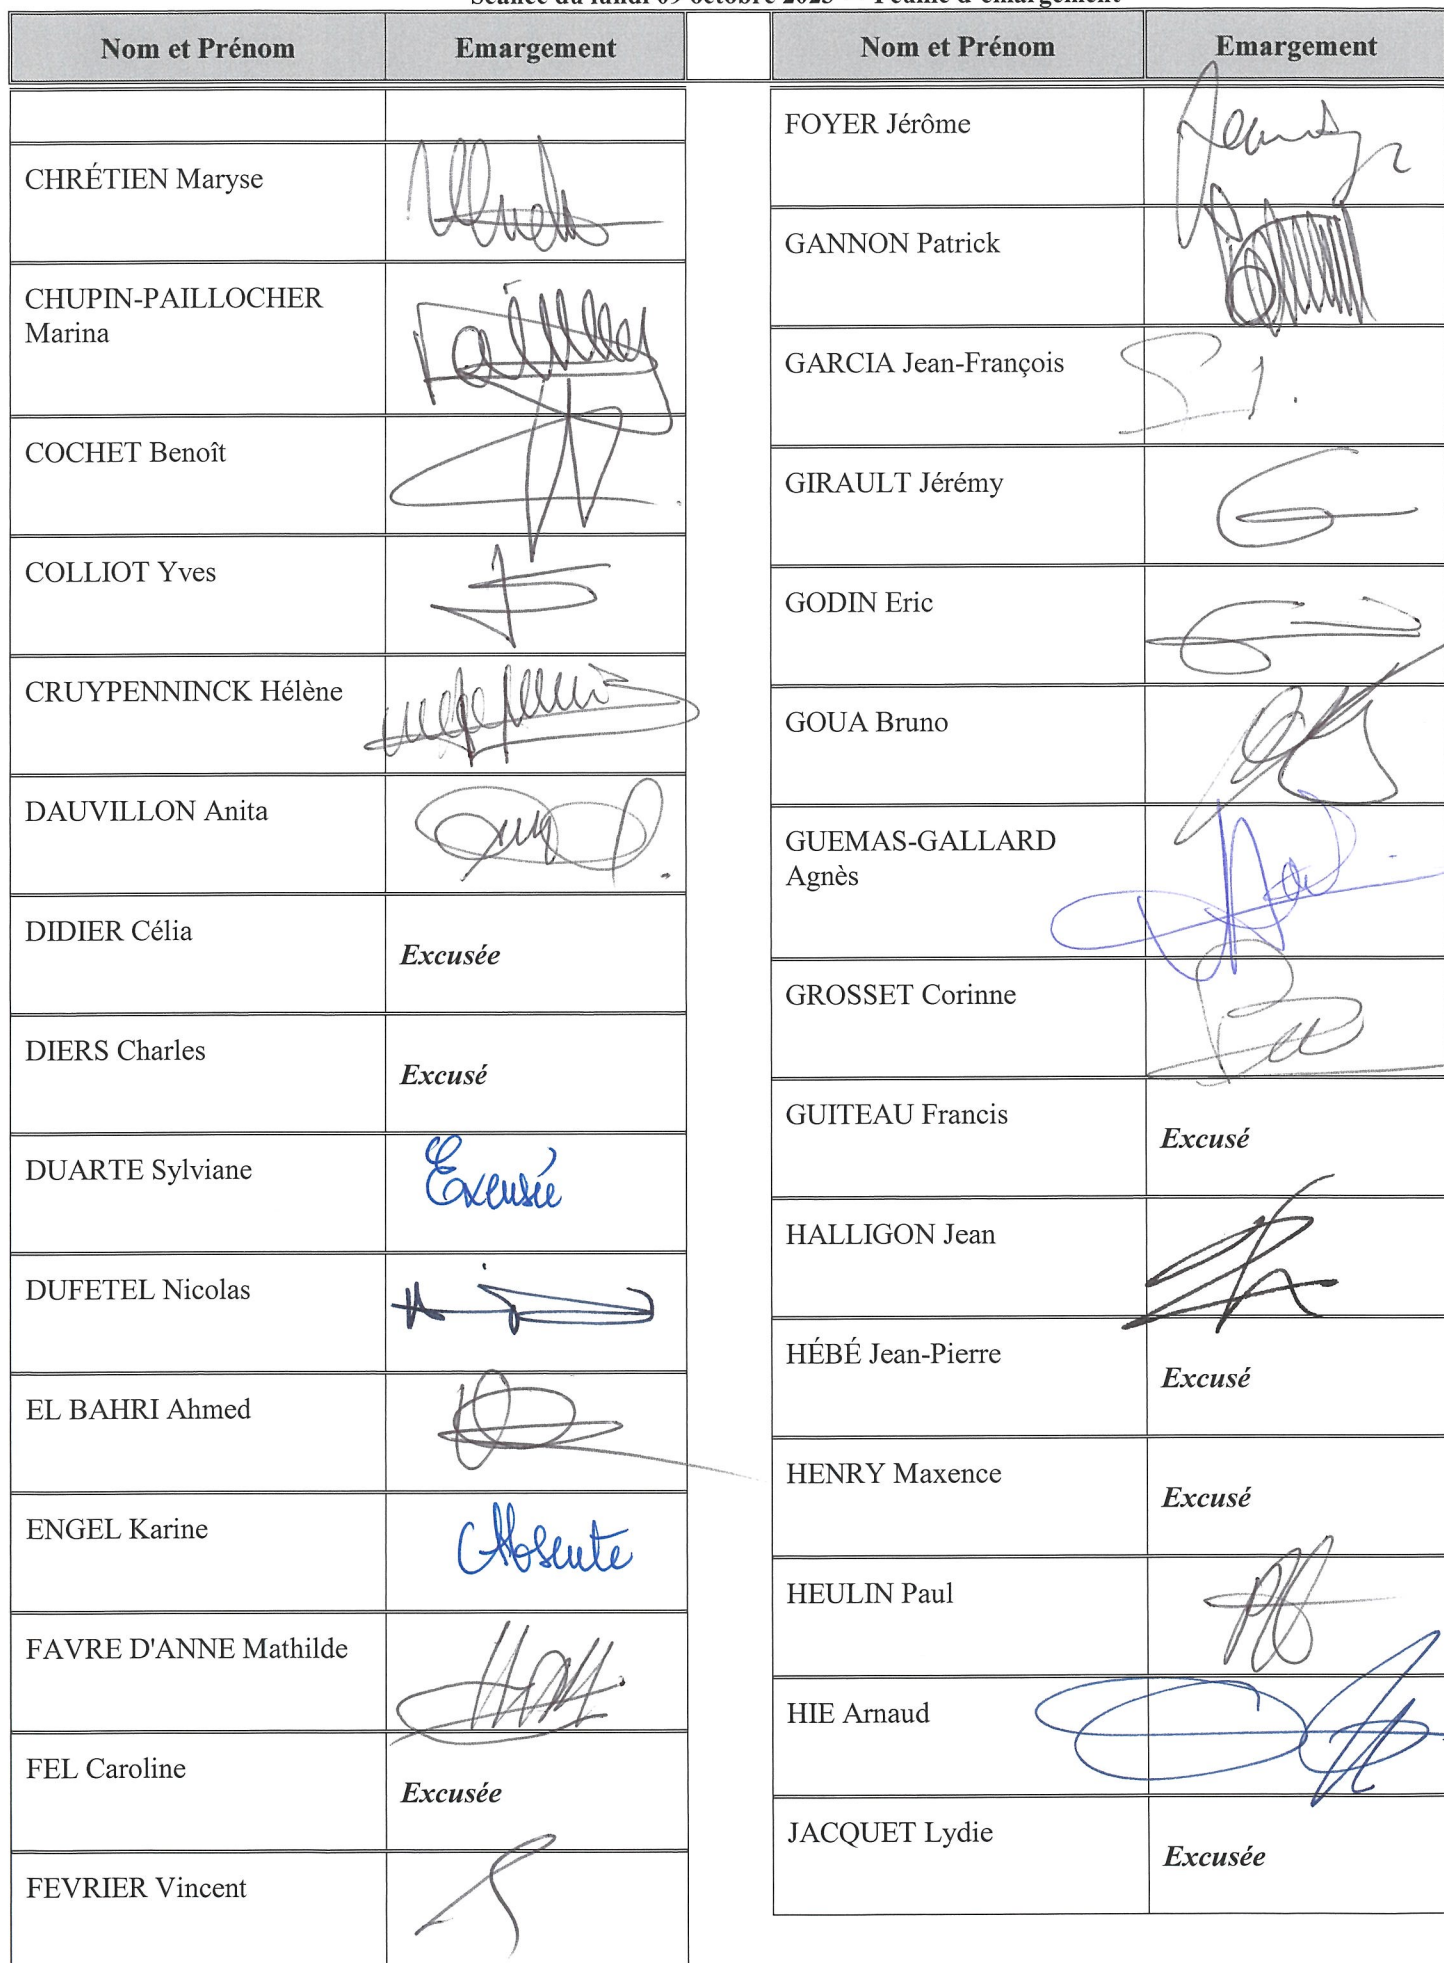 Séance du lundi 09 octobre 2023 Feuille d'émargement
Nom et Prénom Emargement
CHRÉTIEN Maryse
CHUPIN-PAILLOCHER
Marina
COCHET Benoît
COLLIOT Yves
CRUYPENNINCK Hélène
DAUVILLON Anita
DIDIER Célia
Excusée
DIERS Charles
Excusé
DUARTE Sylviane Excusée
DUFETEL Nicolas
EL BAHRI Ahmed
ENGEL Karine Absente
FAVRE D'ANNE Mathilde
FEL Caroline
Excusée
FEVRIER Vincent
Nom et Prénom Emargement
FOYER Jérôme
GANNON Patrick
GARCIA Jean-François
GIRAULT Jérémy
GODIN Eric
GOUA Bruno
GUEMAS-GALLARD
Agnès
GROSSET Corinne
GUITEAU Francis
Excusé
HALLIGON Jean
HÉBÉ Jean-Pierre
Excusé
HENRY Maxence
Excusé
HEULIN Paul
HIE Arnaud
JACQUET Lydie
Excusée